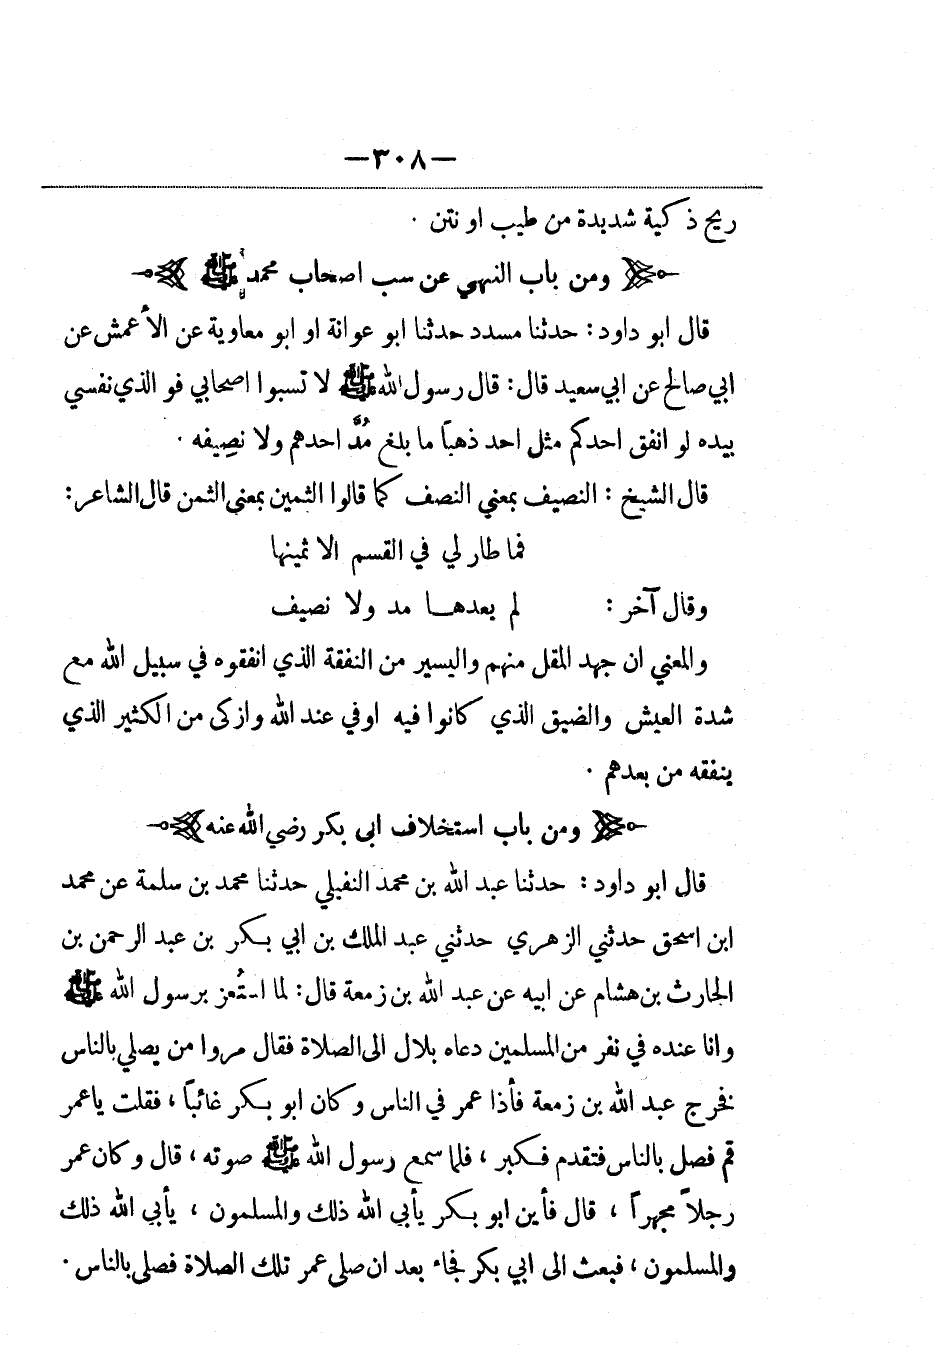 —٣٠٨—
ريح ذكية شديدة من طيب او نتن .
ومن باب النهي عن سب اصحاب محمد ﷺ
قال ابو داود : حدثنا مسدد حدثنا ابو عوانة او ابو معاوية عن الأعمش عن
ابي صالح عن ابي سعيد قال : قال رسول الله ﷺ لا تسبوا اصحابي فو الذي نفسي
بيده لو انفق احدكم مثل احد ذهباً ما بلغ مُدَّ احدهم ولا نصِيفه .
قال الشيخ : النصيف بمعني النصف كما قالوا الثمين بمعني الثمن قال الشاعر :
فما طار لي في القسم الا ثمينها
وقال آخر : لم يعدهـا مد ولا نصيف
والمعني ان جهد المقل منهم واليسير من النفقة الذي انفقوه في سبيل الله مع
شدة العيش والضيق الذي كانوا فيه اوفي عند الله وازكى من الكثير الذي
ينفقه من بعدهم .
ومن باب استخلاف ابى بكر رضي الله عنه
قال ابو داود : حدثنا عبد الله بن محمد النفيلي حدثنا محمد بن سلمة عن محمد
ابن اسحق حدثني الزهري حدثني عبد الملك بن ابي بكر بن عبد الرحمن بن
الحارث بن هشام عن ابيه عن عبد الله بن زمعة قال : لما استُعز برسول الله ﷺ
وانا عنده في نفر من المسلمين دعاه بلال الى الصلاة فقال مروا من يصلي بالناس
فخرج عبد الله بن زمعة فأذا عمر في الناس وكان ابو بكر غائباً ، فقلت ياعمر
قم فصل بالناس فتقدم فكبر ، فلما سمع رسول الله ﷺ صوته ، قال وكان عمر
رجلاً مجهراً ، قال فأين ابو بكر يأبي الله ذلك والمسلمون ، يأبي الله ذلك
والمسلمون ، فبعث الى ابي بكر فجاء بعد ان صلى عمر تلك الصلاة فصلى بالناس .